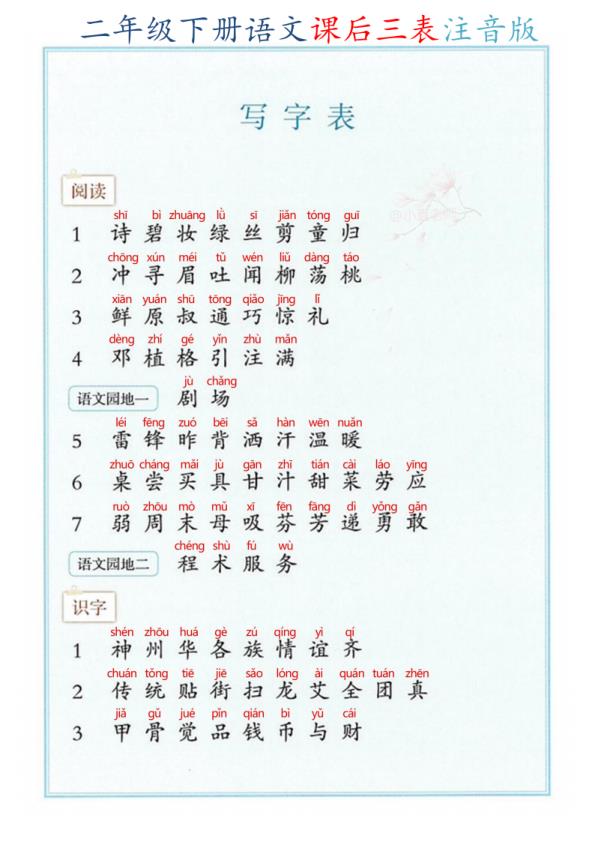 二年级下册语文课后三表注音版
写字表
阅读
shī bì zhuāng lǜ sī jiǎn tóng guī
1 诗 碧 妆 绿 丝 剪 童 归
chōng xún méi tǔ wén liǔ dàng táo
2 冲 寻 眉 吐 闻 柳 荡 桃
xiān yuán shū tōng qiǎo jīng lǐ
3 鲜 原 叔 通 巧 惊 礼
dèng zhí gé yǐn zhù mǎn
4 邓 植 格 引 注 满
jù chǎng
语文园地一 剧 场
léi fēng zuó bēi sǎ hàn wēn nuǎn
5 雷 锋 昨 背 洒 汗 温 暖
zhuō cháng mǎi jù gān zhī tián cài láo yīng
6 桌 尝 买 具 甘 汁 甜 菜 劳 应
ruò zhōu mò mǔ xī fēn fāng dì yǒng gǎn
7 弱 周 末 母 吸 芬 芳 递 勇 敢
chéng shù fú wù
语文园地二 程 术 服 务
识字
shén zhōu huá gè zú qíng yì qí
1 神 州 华 各 族 情 谊 齐
chuán tǒng tiē jiē sǎo lóng ài quán tuán zhēn
2 传 统 贴 街 扫 龙 艾 全 团 真
jiǎ gǔ jué pǐn qián bì yǔ cái
3 甲 骨 觉 品 钱 币 与 财